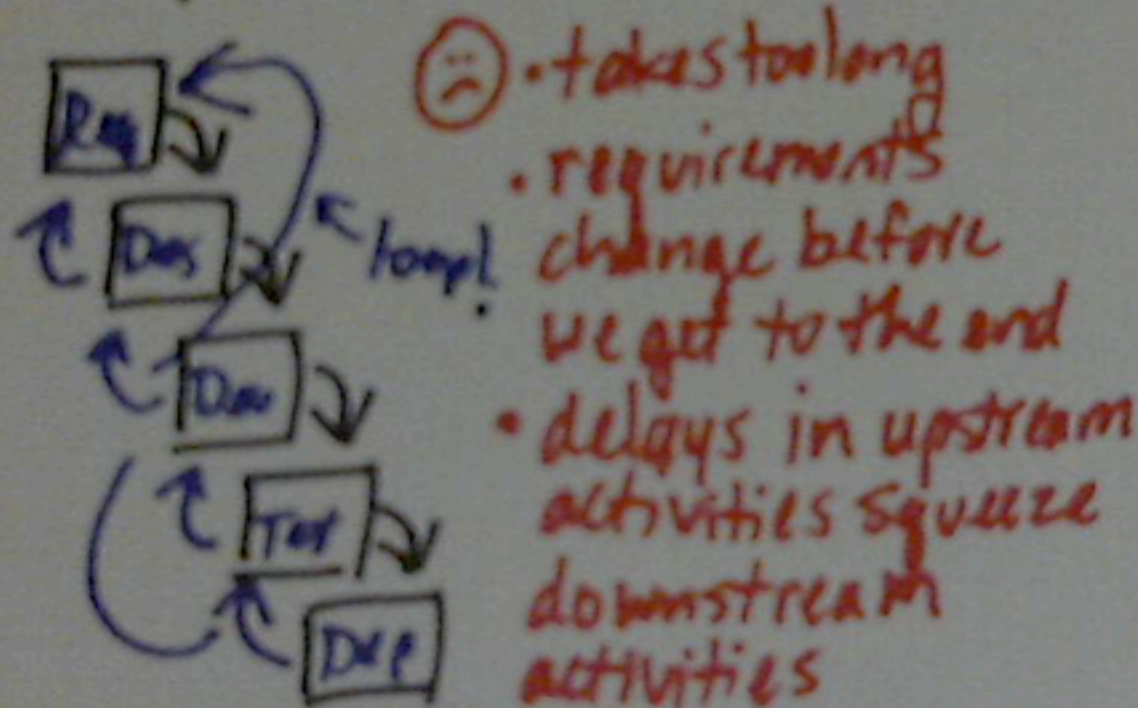 Req
Des
loop!
Dev
Test
Dep
• takes too long
• requirements
change before
we get to the end
• delays in upstream
activities squeeze
downstream
activities